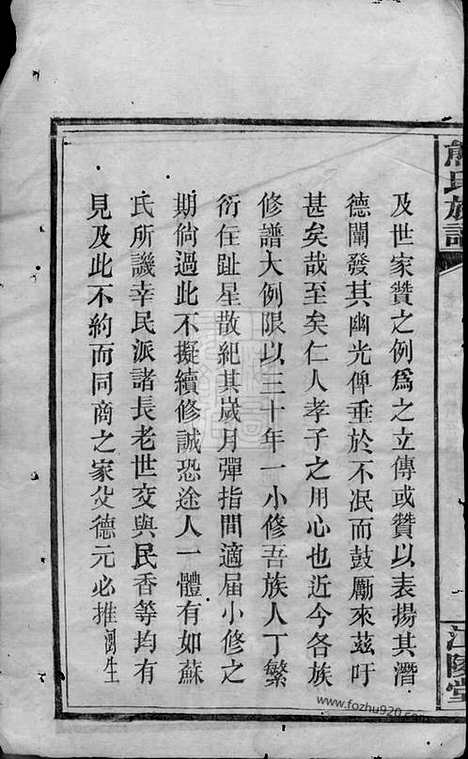 熊氏族譜
江陵堂
及世家贊之例爲之立傳或贊以表揚其潛
德闡發其幽光俾垂於不泯而鼓勵來茲吁
甚矣哉至矣仁人孝子之用心也近今各族
修譜大例限以三十年一小修吾族人丁繁
衍住趾星散紀其歲月彈指間適届小修之
期倘過此不擬續修誠恐途人一體有如蘇
氏所譏幸民派諸長老世交與民香等均有
見及此不約而同商之家父德元必推澍生
www.fozhu920.com